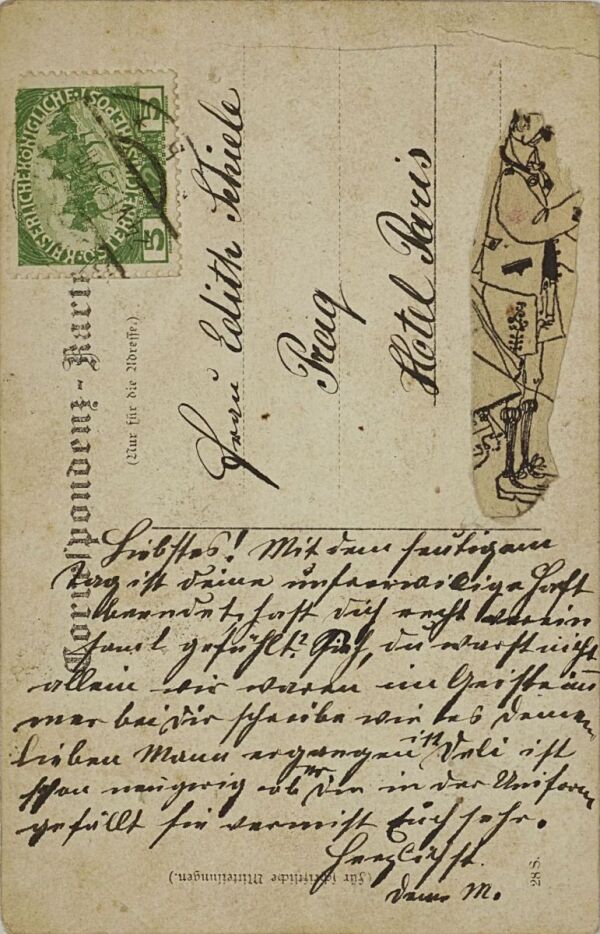 KAISERLICHE KÖNIGLICHE
ÖSTERREICHISCHE POST
5 5
Correspondenz-Karte
(Nur für die Adresse.)
Frau Edith Schiele
Prag
Hotel Paris
Liebstes! Mit dem heutigem
Tag ist deine unfreiwillige Haft
beendet, hast dich recht verein
samt gefühlt? Sieh, du warst nicht
allein wir waren im Geiste im
mer bei Dir schreibe wie es Deinem
lieben Mann ergangen ist Deli ist
schon neugierig ob er Dir in der Uniform
gefällt sie vermist Euch sehr.
Herzlichst.
Deine M.
(Für schriftliche Mitteilungen.)
28 S.